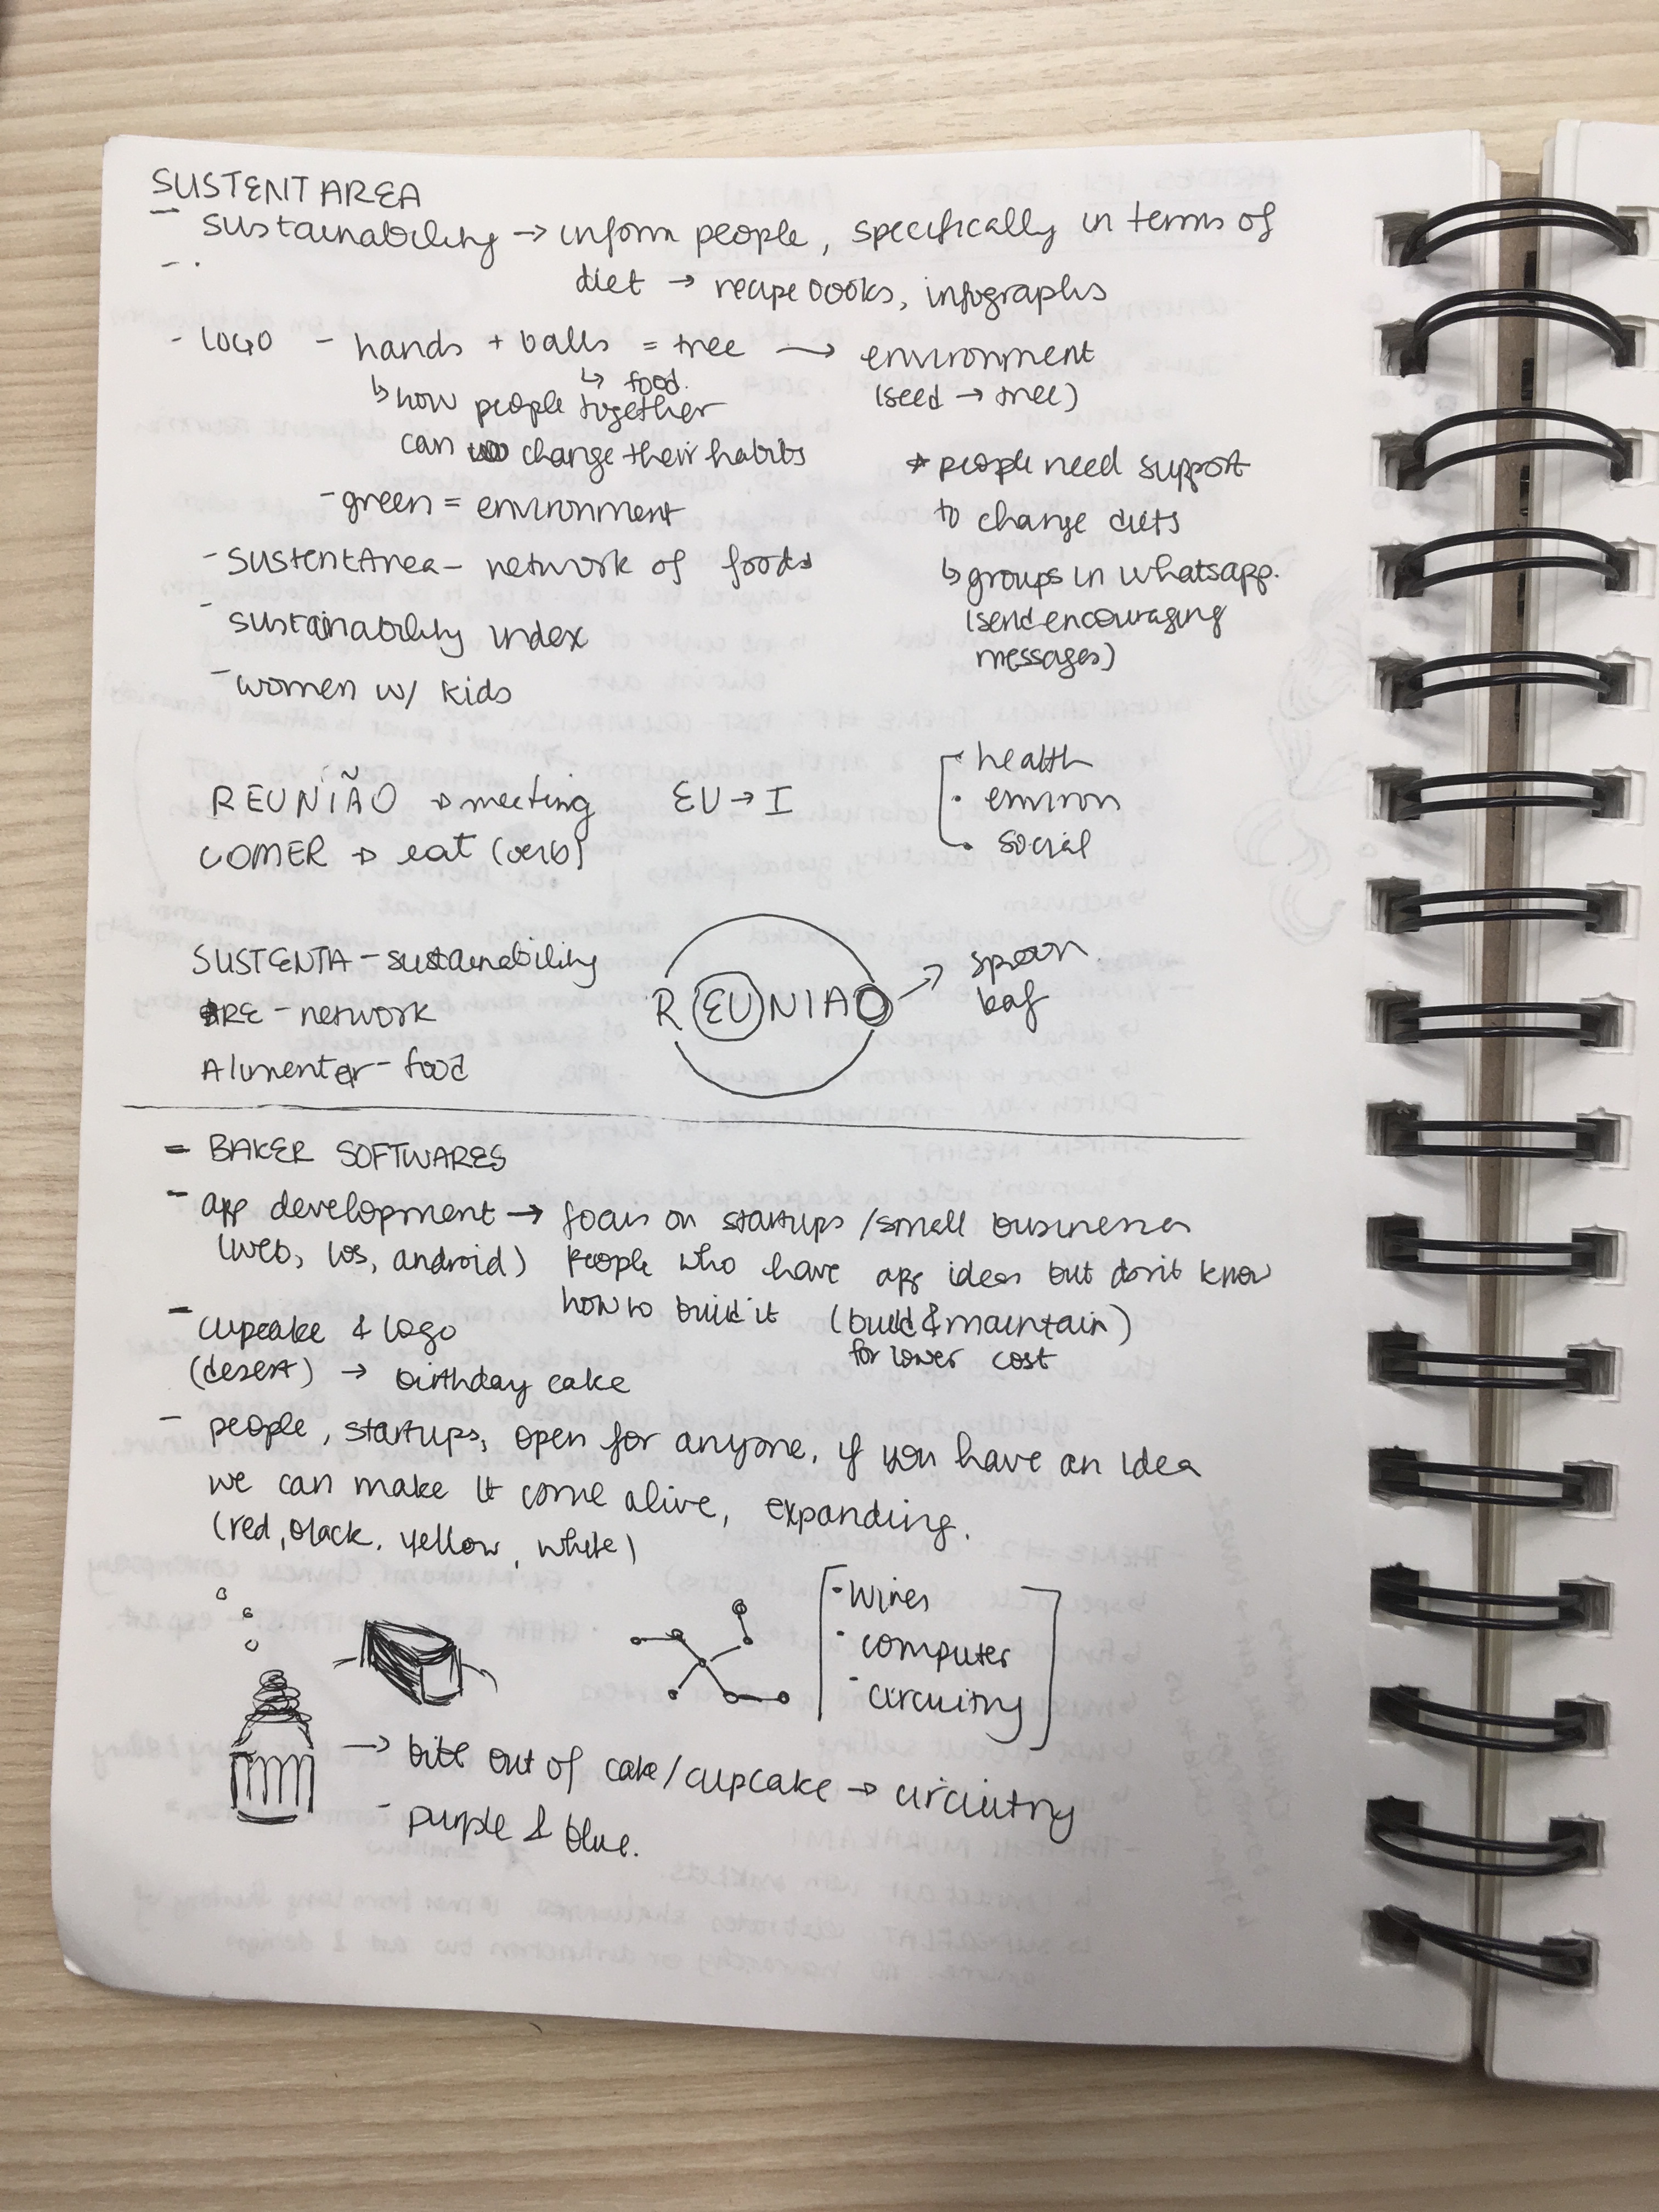 SUSTENTAREA
- sustainability → inform people, specifically in terms of
diet → recipe books, infographs
- LOGO - hands + balls = tree → environment
↳ food.
(seed → tree)
↳ how people together
can change their habits
- green = environment
* people need support
to change diets
↳ groups in whatsapp.
(send encouraging
messages)
- SustentArea - network of foods
- sustainability index
- women w/ kids
REUNIÃO → meeting EU → I
COMER → eat (verb)
· health
· environ
· social
SUSTENTA - sustainability
RE - network
Alimentar - food
REUNIAO → spoon
leaf
- BAKER SOFTWARES
- app development → focus on startups / small businesses
(web, ios, android) people who have app ideas but don't know
how to build it (build & maintain)
for lower cost
- cupcake & logo
(desert) → birthday cake
- people, startups, open for anyone, if you have an idea
we can make it come alive, expanding.
(red, black, yellow, white)
· wires
· computer
· circuitry
→ bite out of cake/cupcake → circuitry
- purple & blue.